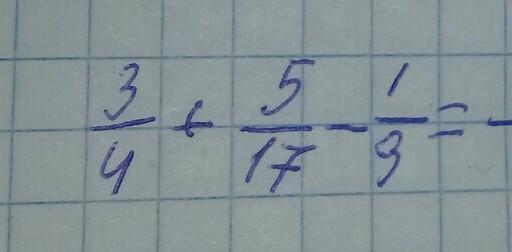 3/4 + 5/17 - 1/9 = -